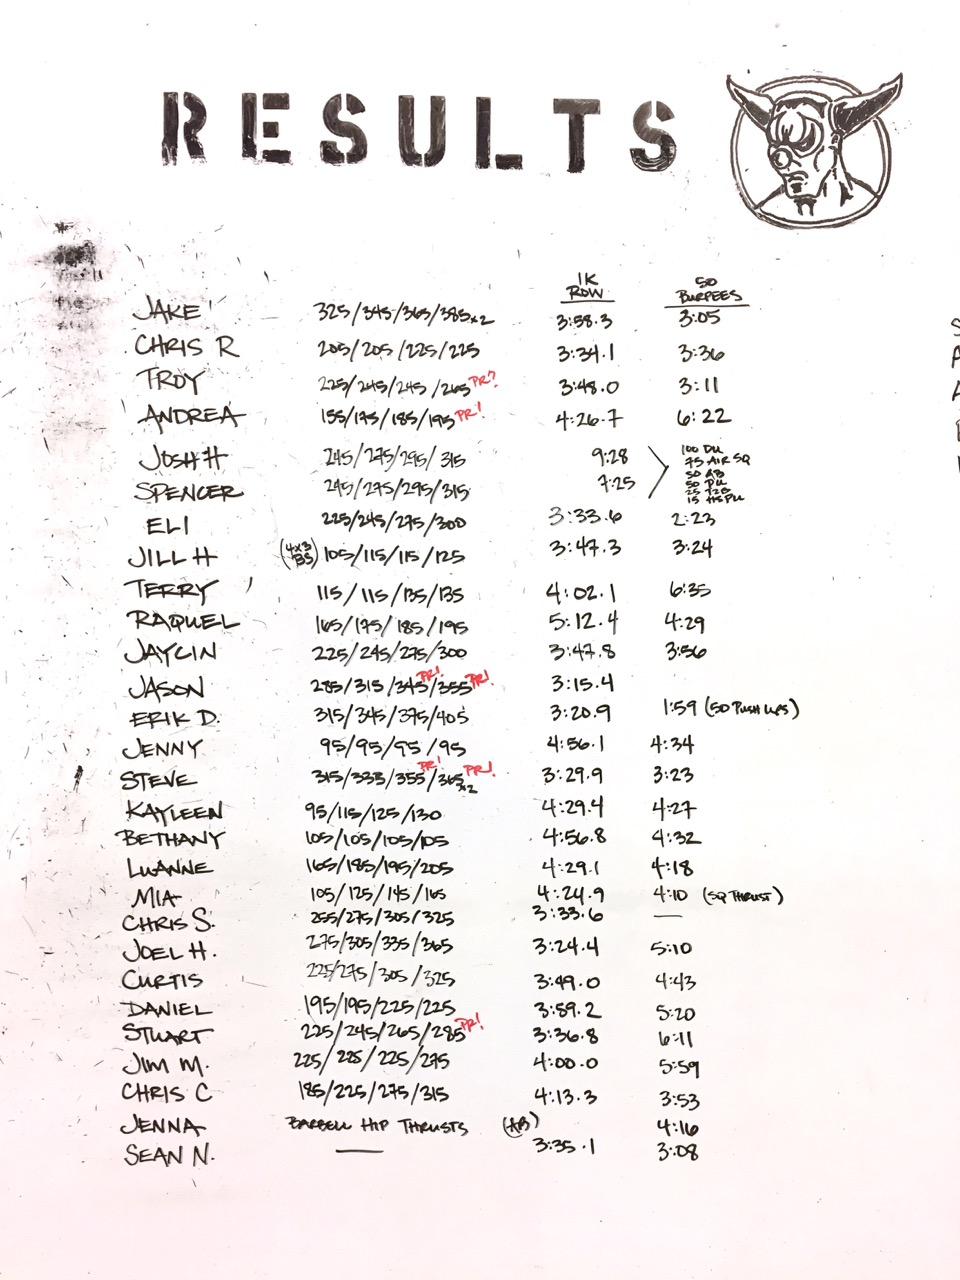 RESULTS
1K ROW 50 BURPEES
JAKE 325/345/365/385x2 3:58.3 3:05
CHRIS R 205/205/225/225 3:34.1 3:36
TROY 225/245/245/265 PR? 3:48.0 3:11
ANDREA 155/175/185/195 PR! 4:26.7 6:22
JOSH H 245/275/295/315 9:28 100 DU
75 AIR SQ
SPENCER 245/275/295/315 7:25 50 AB
50 PU
25 T2B
15 HSPU
ELI 225/245/275/300 3:33.6 2:23
JILL H (4x3 BS) 105/115/115/125 3:47.3 3:24
TERRY 115/115/135/135 4:02.1 6:35
RAQUEL 165/175/185/195 5:12.4 4:29
JAYLIN 225/245/275/300 3:47.8 3:56
JASON 285/315/345 PR!/355 PR! 3:15.4
ERIK D. 315/345/375/405 3:20.9 1:59 (50 PUSH UPS)
JENNY 95/95/95/95 4:56.1 4:34
STEVE 315/335/355 PR!/365x2 PR! 3:29.9 3:23
KAYLEEN 95/115/125/130 4:29.4 4:27
BETHANY 105/105/105/105 4:56.8 4:32
LUANNE 165/185/195/205 4:29.1 4:18
MIA 105/125/145/165 4:24.9 4:10 (SQ THRUST)
CHRIS S. 255/275/305/325 3:33.6 —
JOEL H. 275/305/335/365 3:24.4 5:10
CURTIS 225/275/305/325 3:49.0 4:43
DANIEL 195/195/225/225 3:59.2 5:20
STUART 225/245/265/285 PR! 3:36.8 6:11
JIM M. 225/225/225/275 4:00.0 5:59
CHRIS C 185/225/275/315 4:13.3 3:53
JENNA BARBELL HIP THRUSTS (AB) 4:16
SEAN N. — 3:35.1 3:08